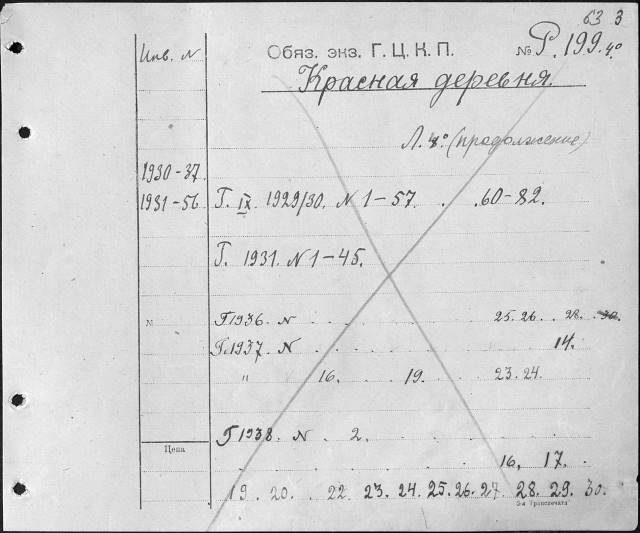 63 3
Инв. N
Обяз. экз. Г. Ц. К. П.
№ Р. 199 4º
Красная деревня.
Л. 4º (продолжение)
1930-37
1931-56 Г. IX. 1929/30. N 1-57. . .60-82.
Г. 1931. N 1-45.
№ Г1936. N . . . . . 25. 26. . 28. . 30.
Г.1937. N . . . . . . 14.
" 16. . 19. . 23. 24.
Г 1938. N . 2. . . . .
Цена
16. 17. .
19. 20. . 22. 23. 24. 25. 26. 27. 28. 29. 30.
3-я Транспечать